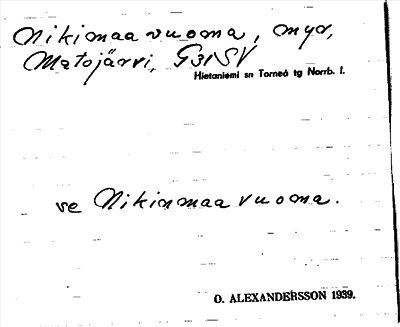 Nikimaavuoma, myr,
Matojärvi, G31SV
Hietaniemi sn Torneå tg Norrb. l.
ve Nikinmaavuoma.
O. ALEXANDERSSON 1939.